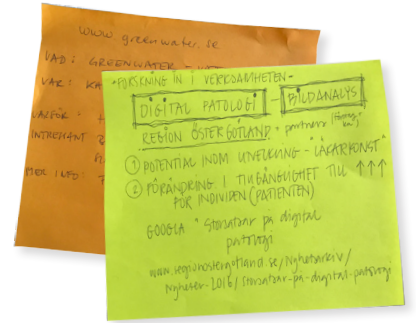 www.greenwater.se
VAD: GREENWATER -
VAR: KA
VARFÖR:
INTRESSANT
MER INFO:
-FORSKNING IN I VERKSAMHETEN-
DIGITAL PATOLOGI - BILDANALYS
REGION ÖSTERGÖTLAND + partners
① POTENTIAL INOM UTVECKLING - "LÄKARKONST"
② FÖRÄNDRING I TILLGÄNGLIGHET TILL ↑↑↑
FÖR INDIVIDEN (PATIENTEN)
GOOGLA "Storsatsar på digital
patologi
www.regionostergotland.se/Nyhetsarkiv/
Nyheter-2016/Storsatsar-pa-digital-patologi